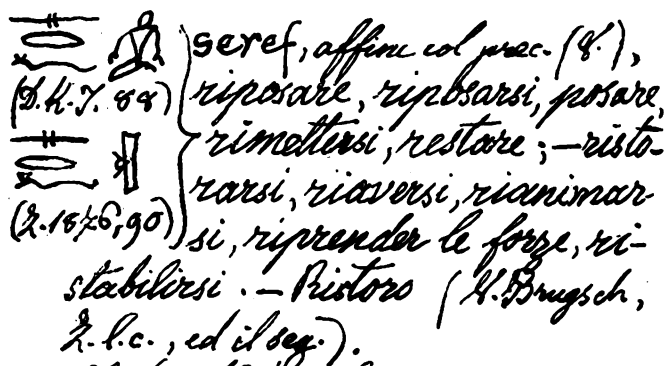 seref, affine col prec. (V.),
(D.H.I. 88) riposare, riposarsi, posare,
rimettersi, restare; — risto-
rarsi, riaversi, rianimar-
(Z. 1876, 90) si, riprender le forze, ri-
stabilirsi. — Ristoro (V. Brugsch,
Z. l. c., ed il seg.).